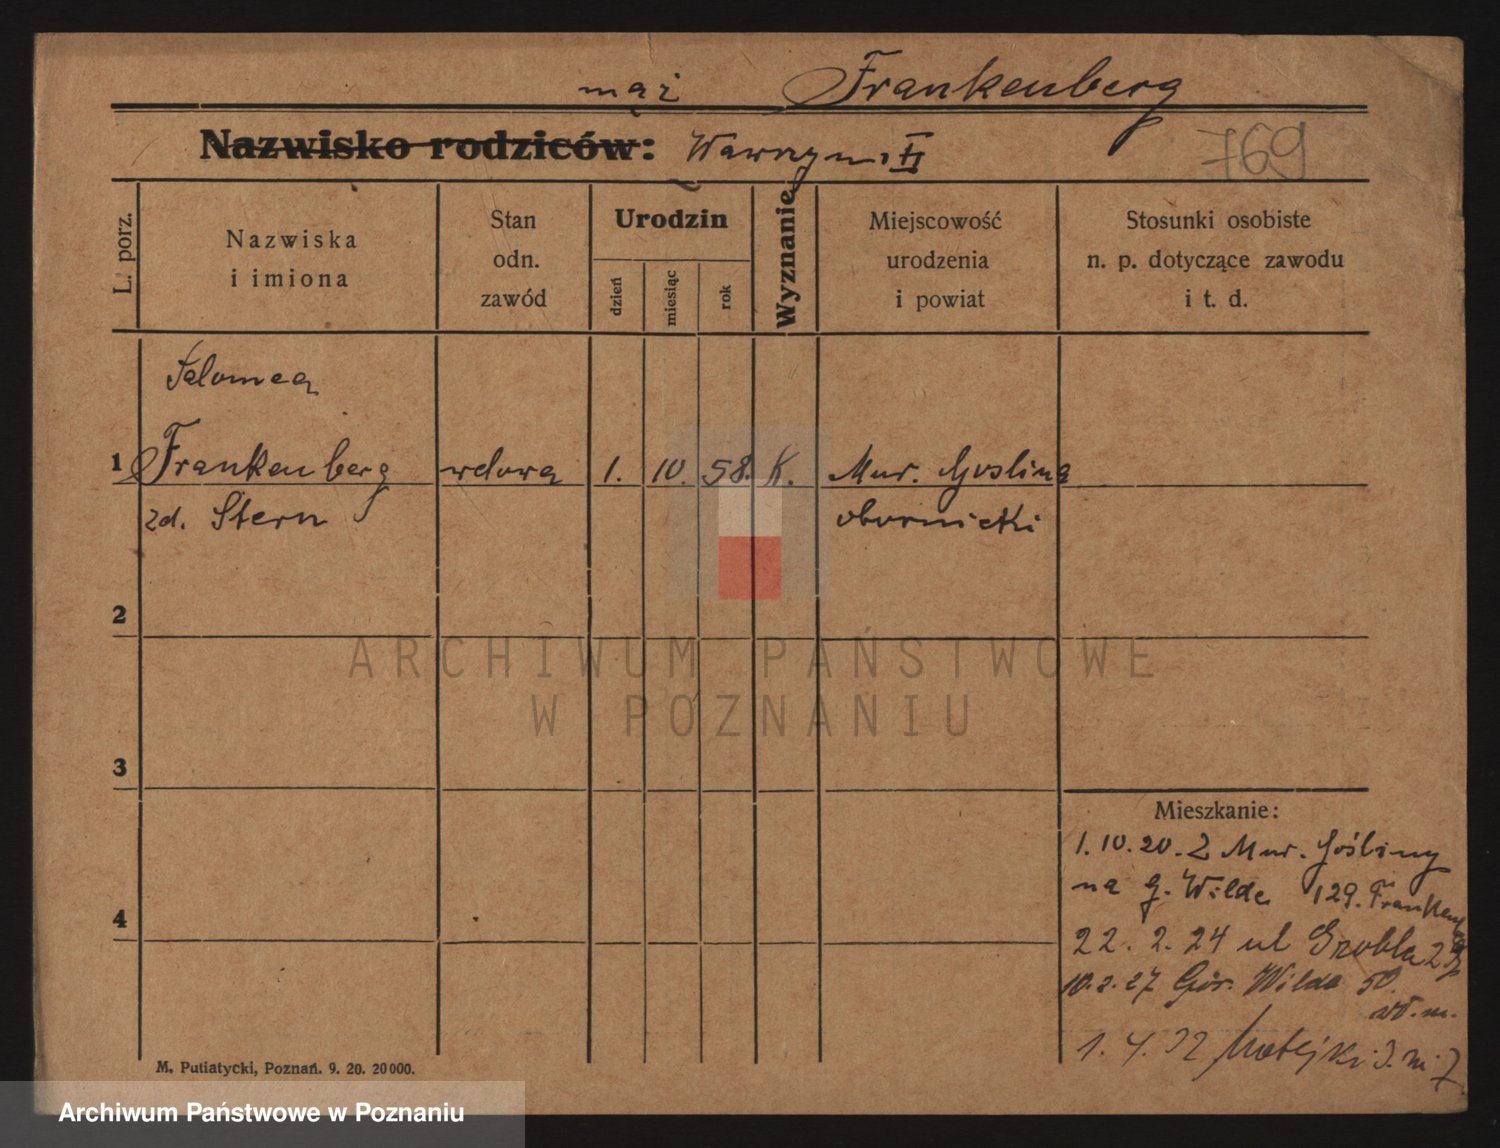 mąż Frankenberg
Nazwisko rodziców: Wawrzyn
769
L. porz.
Nazwiska
i imiona
Stan
odn.
zawód
Urodzin
dzień
miesiąc
rok
Wyznanie
Miejscowość
urodzenia
i powiat
Stosunki osobiste
n. p. dotyczące zawodu
i t. d.
Salomea
1 Frankenberg wdowa 1. 10. 58. K. Mur. Goslina
zd. Stern obornicki
2
3
4
Mieszkanie:
1.10.20. Z Mur. Gośliny
na G. Wilda 129. Frankenbg
22. 2. 24 ul Grobla
10.2.27 Gór. Wilda 50.
1. 4. 32 Matejki
M. Putiatycki, Poznań. 9. 20. 20000.
ARCHIWUM PAŃSTWOWE
W POZNANIU
Archiwum Państwowe w Poznaniu